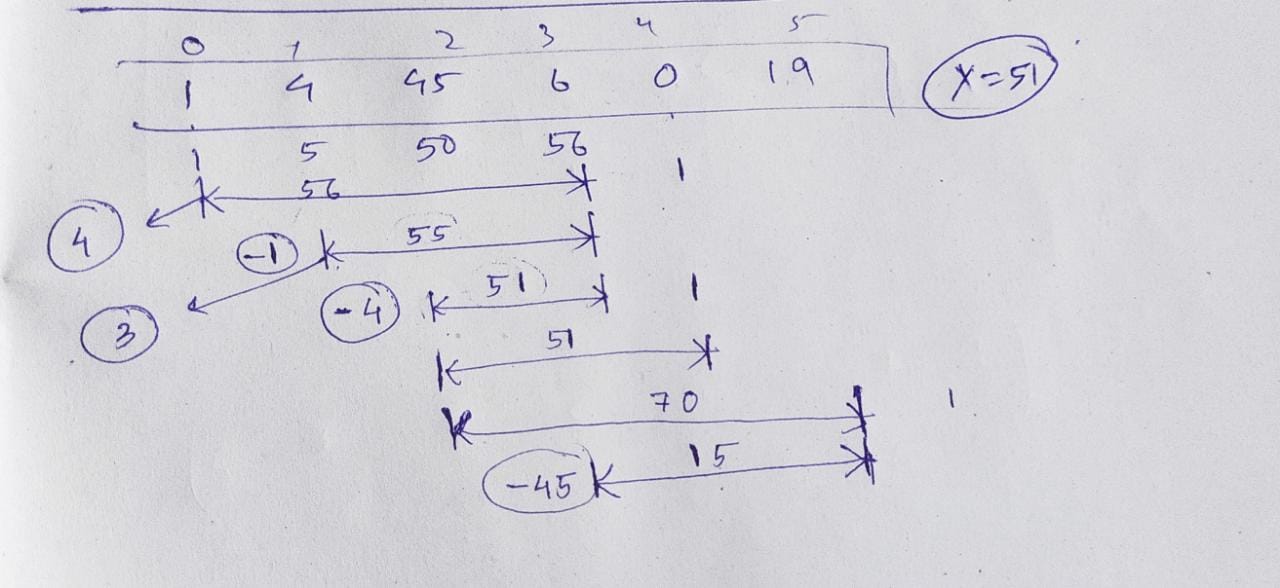 0 1 2 3 4 5
1 4 45 6 0 19 X=51
1 5 50 56
56 1
4
-1 55
-4 51 1
3
51
70 1
-45 15